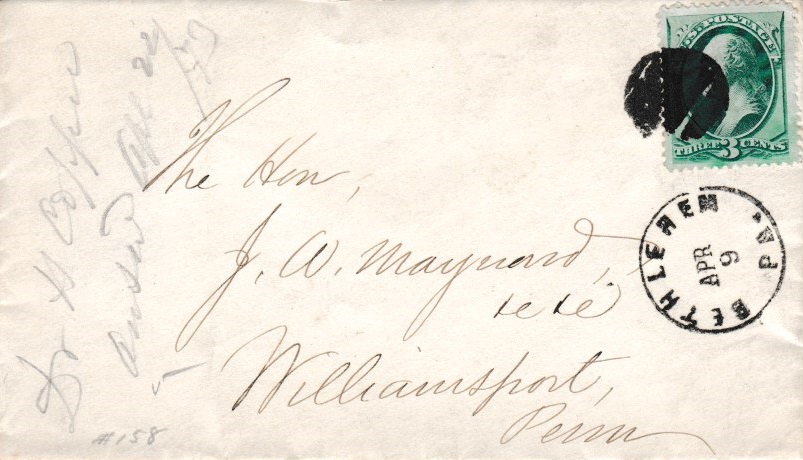 U.S. POSTAGE
THREE 3 CENTS
BETHLEHEM PA.
APR
9
The Hon,
J. W. Maynard,
Williamsport,
Penn
Dr H Coppee
#158